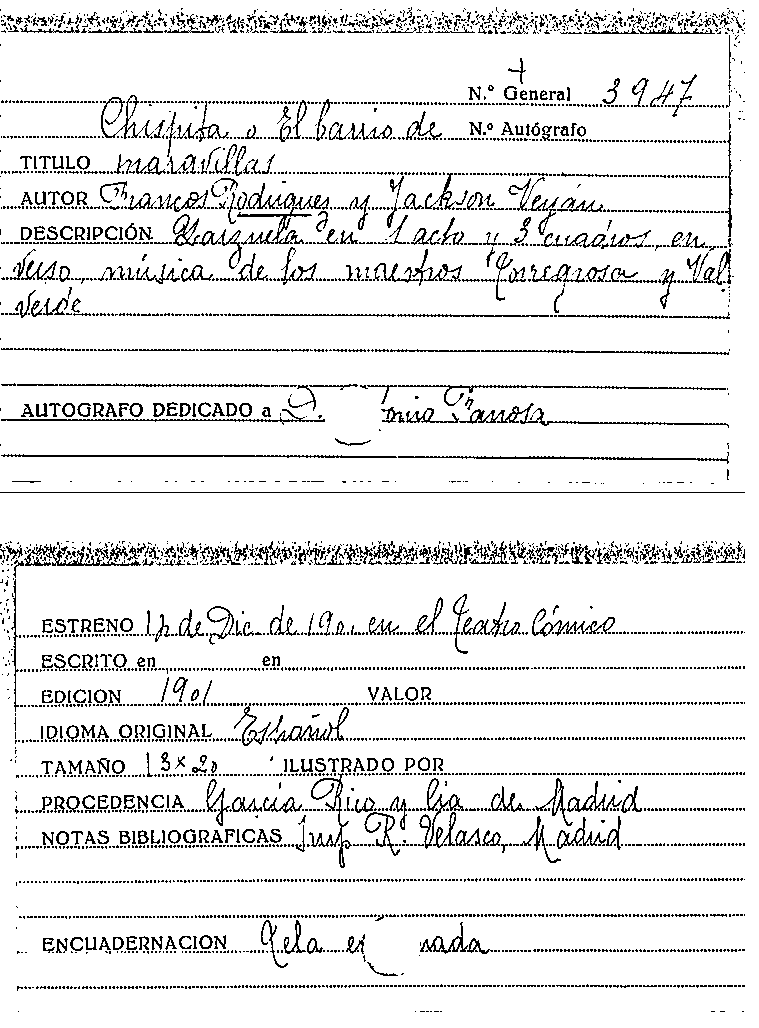 N.º General 3947
Chispita o El barrio de N.º Autógrafo
TITULO maravillas
AUTOR Francos Rodriguez y Jackson Veyán
DESCRIPCIÓN Zarzuela en 1 acto y 3 cuadros, en
verso, música de los maestros Torregrosa y Val
verde
AUTOGRAFO DEDICADO a D.
ESTRENO de Dic. de 1901 en el Teatro Cómico
ESCRITO en en
EDICION 1901 VALOR
IDIOMA ORIGINAL Español
TAMAÑO 13x20 ILUSTRADO POR
PROCEDENCIA García Rico y Cia de Madrid
NOTAS BIBLIOGRAFICAS Imp R. Velasco, Madrid
ENCUADERNACION Tela